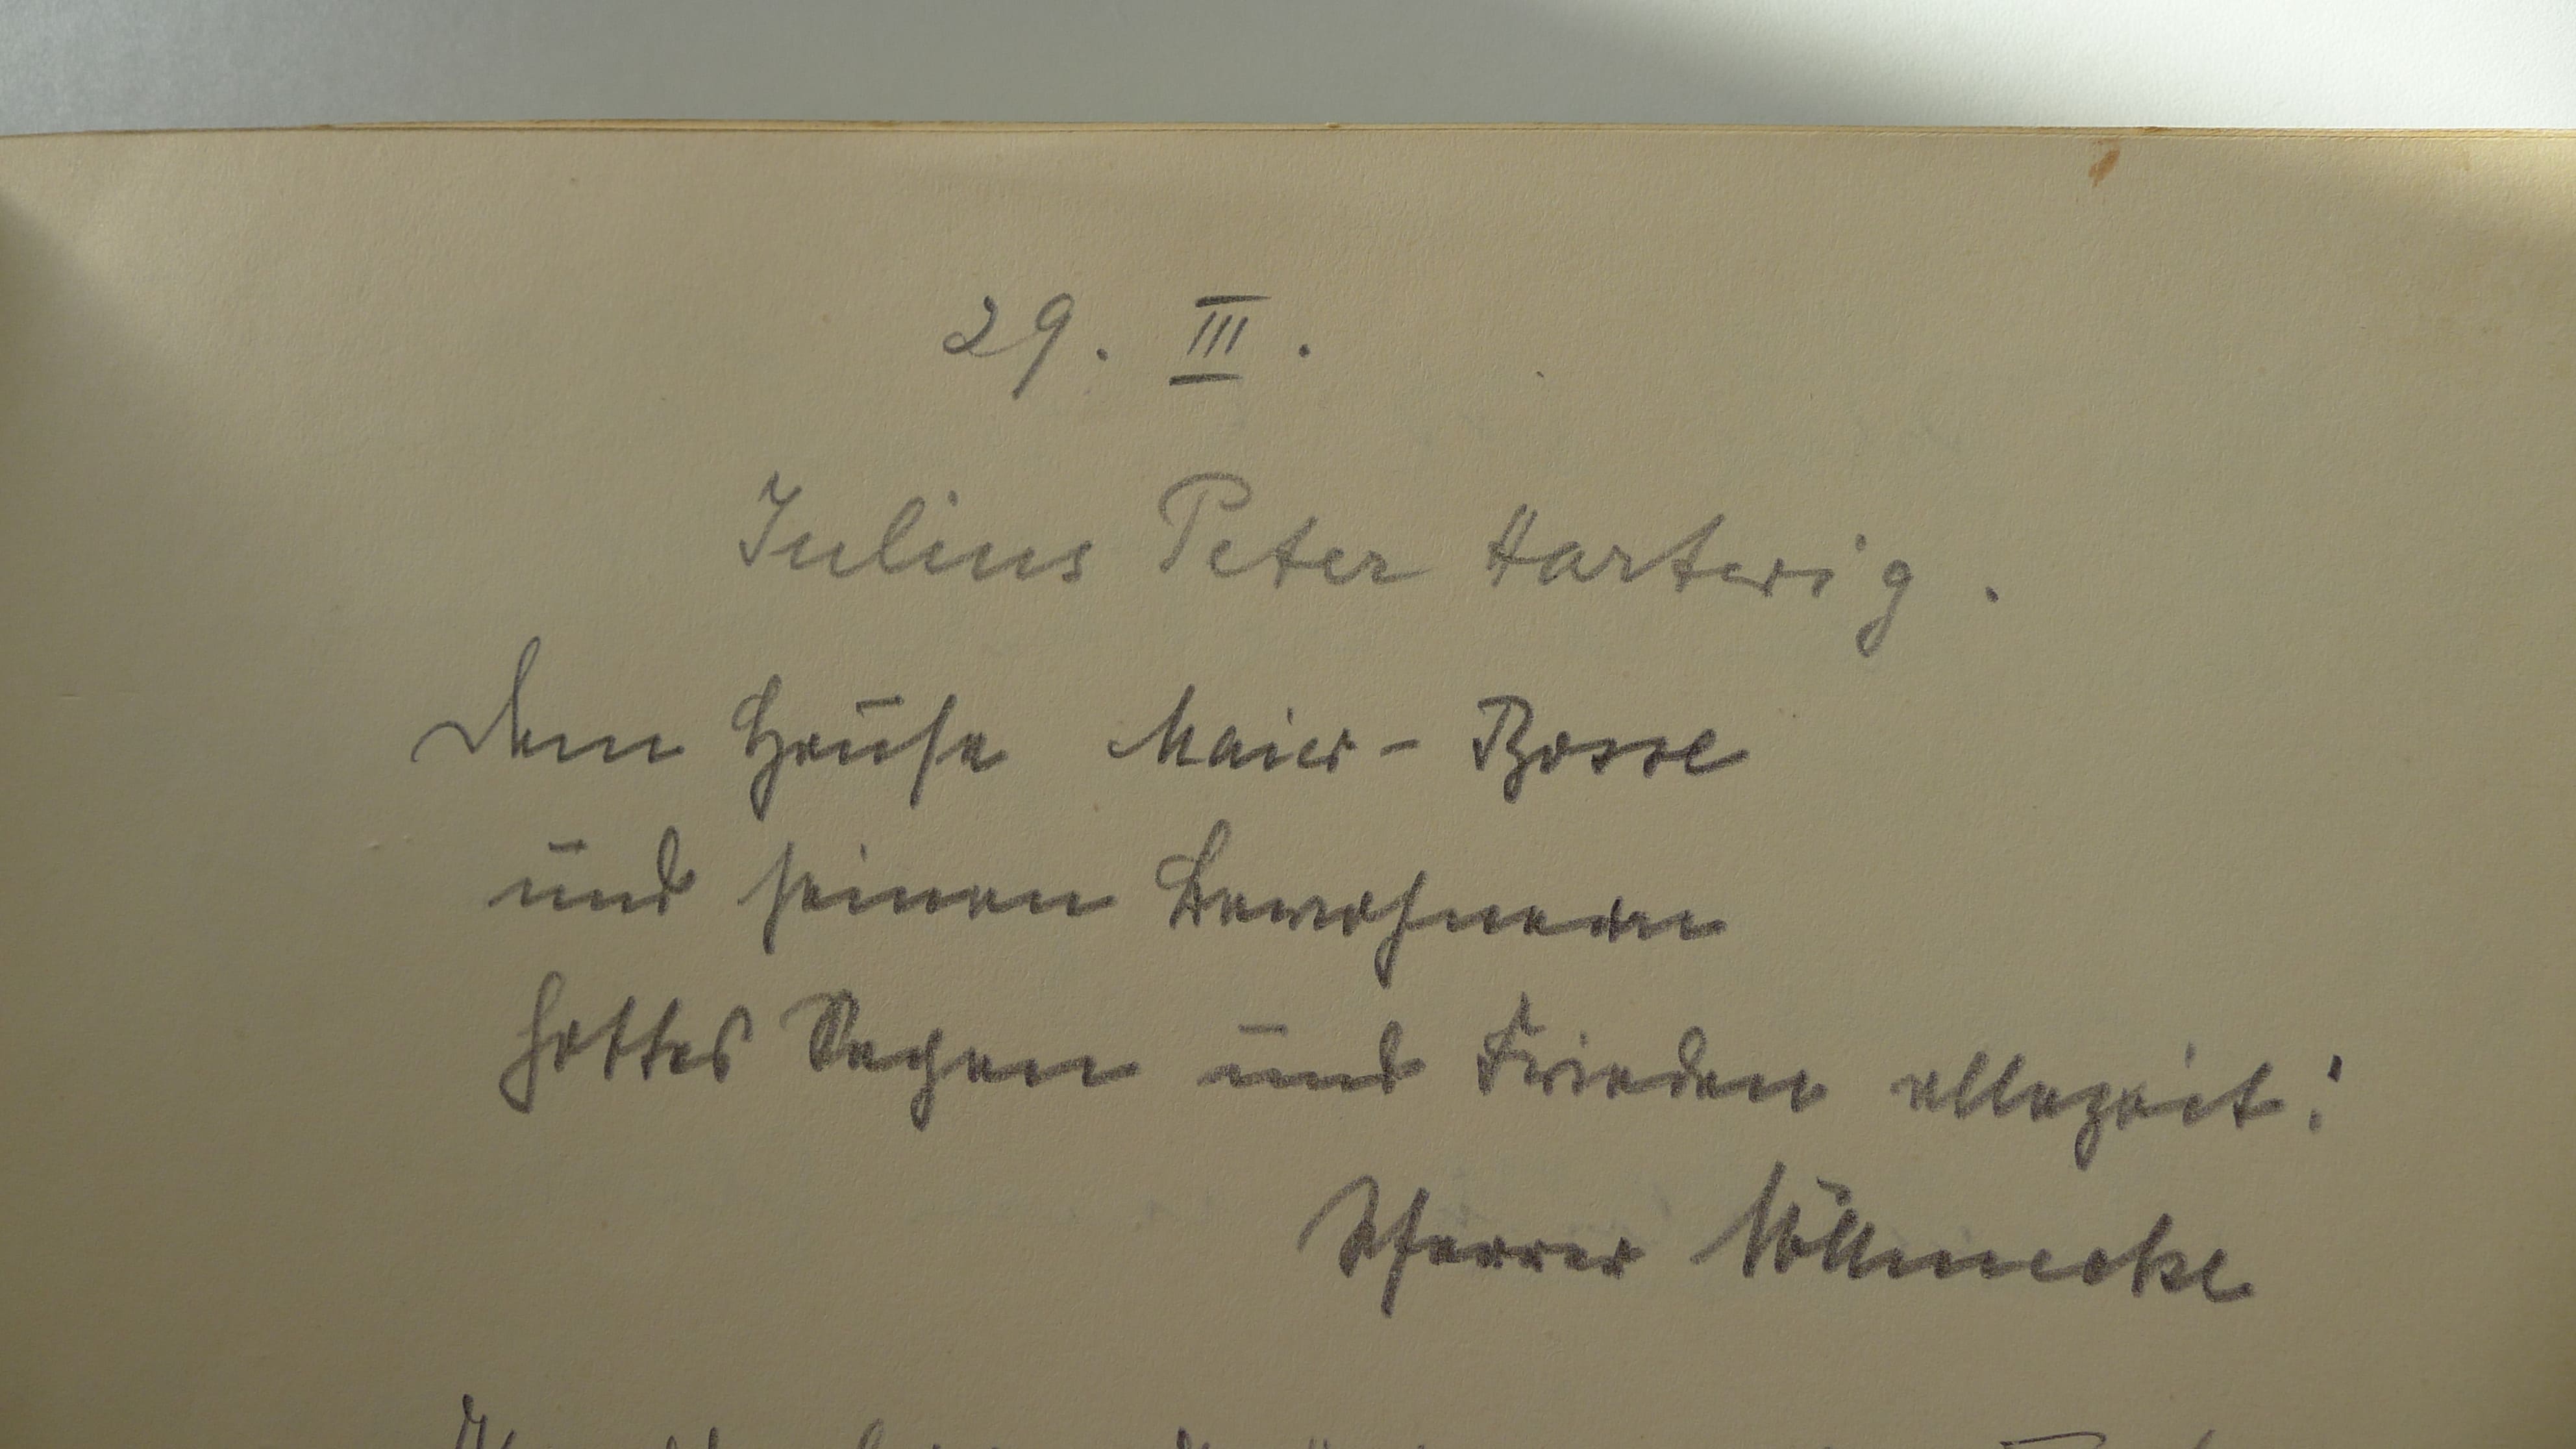 29. III.
Julius Peter Hartwig.
Dem Hause Maier-Bosse
und seinen Bewohnern
Gottes Segen und Frieden allezeit!
Pfarrer Möllmecke